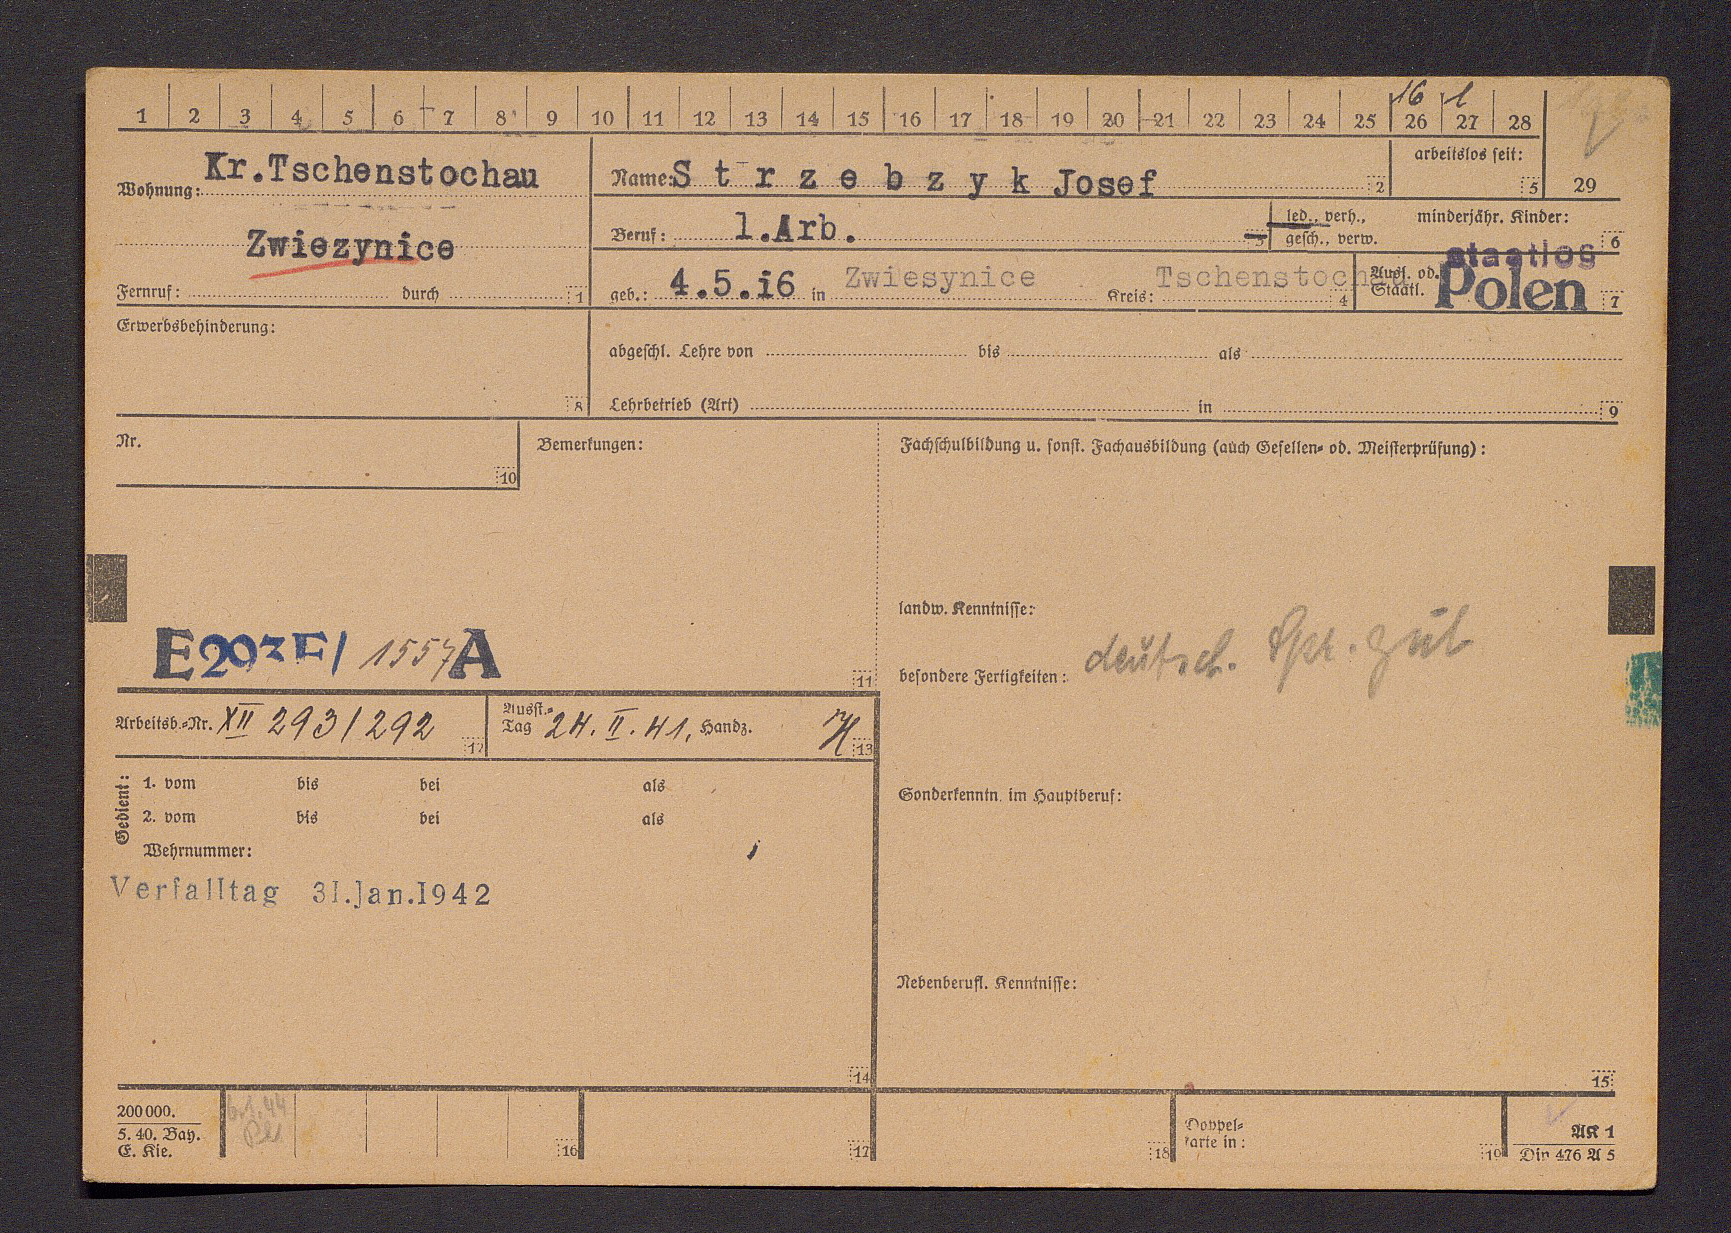 16 1
1 2 3 4 5 6 7 8 9 10 11 12 13 14 15 16 17 18 19 20 21 22 23 24 25 26 27 28
arbeitslos seit:
5 29
Wohnung: Kr.Tschenstochau
Zwiezynice
Fernruf: durch 1
Name: Strzebzyk Josef 2
Beruf: l.Arb. 3
led., verh.,
gesch., verw.
minderjähr. Kinder:
6
geb.: 4.5.i6 in Zwiesynice Kreis: Tschenstochau 4
Ausl. od.
Staatl.
staatlos
Polen 7
Erwerbsbehinderung:
8
abgeschl. Lehre von bis als
Lehrbetrieb (Art) in 9
Nr.
10
Bemerkungen:
E203F/ 1557A
11
Fachschulbildung u. sonst. Fachausbildung (auch Gesellen- od. Meisterprüfung):
landw. Kenntnisse:
besondere Fertigkeiten: deutsch. Spr. gut
Arbeitsb.-Nr. XII 293/292 12
Ausst.-
Tag 24. II. 41. Handz. 13
Gedient:
1. vom bis bei als
2. vom bis bei als
Wehrnummer:
Verfalltag 31.Jan.1942
14
Sonderkenntn. im Hauptberuf:
Nebenberufl. Kenntnisse:
15
200000.
5. 40. Bay.
E. Kie.
16
17
18
Doppel-
karte in:
19
AK 1
Din 476 A 5